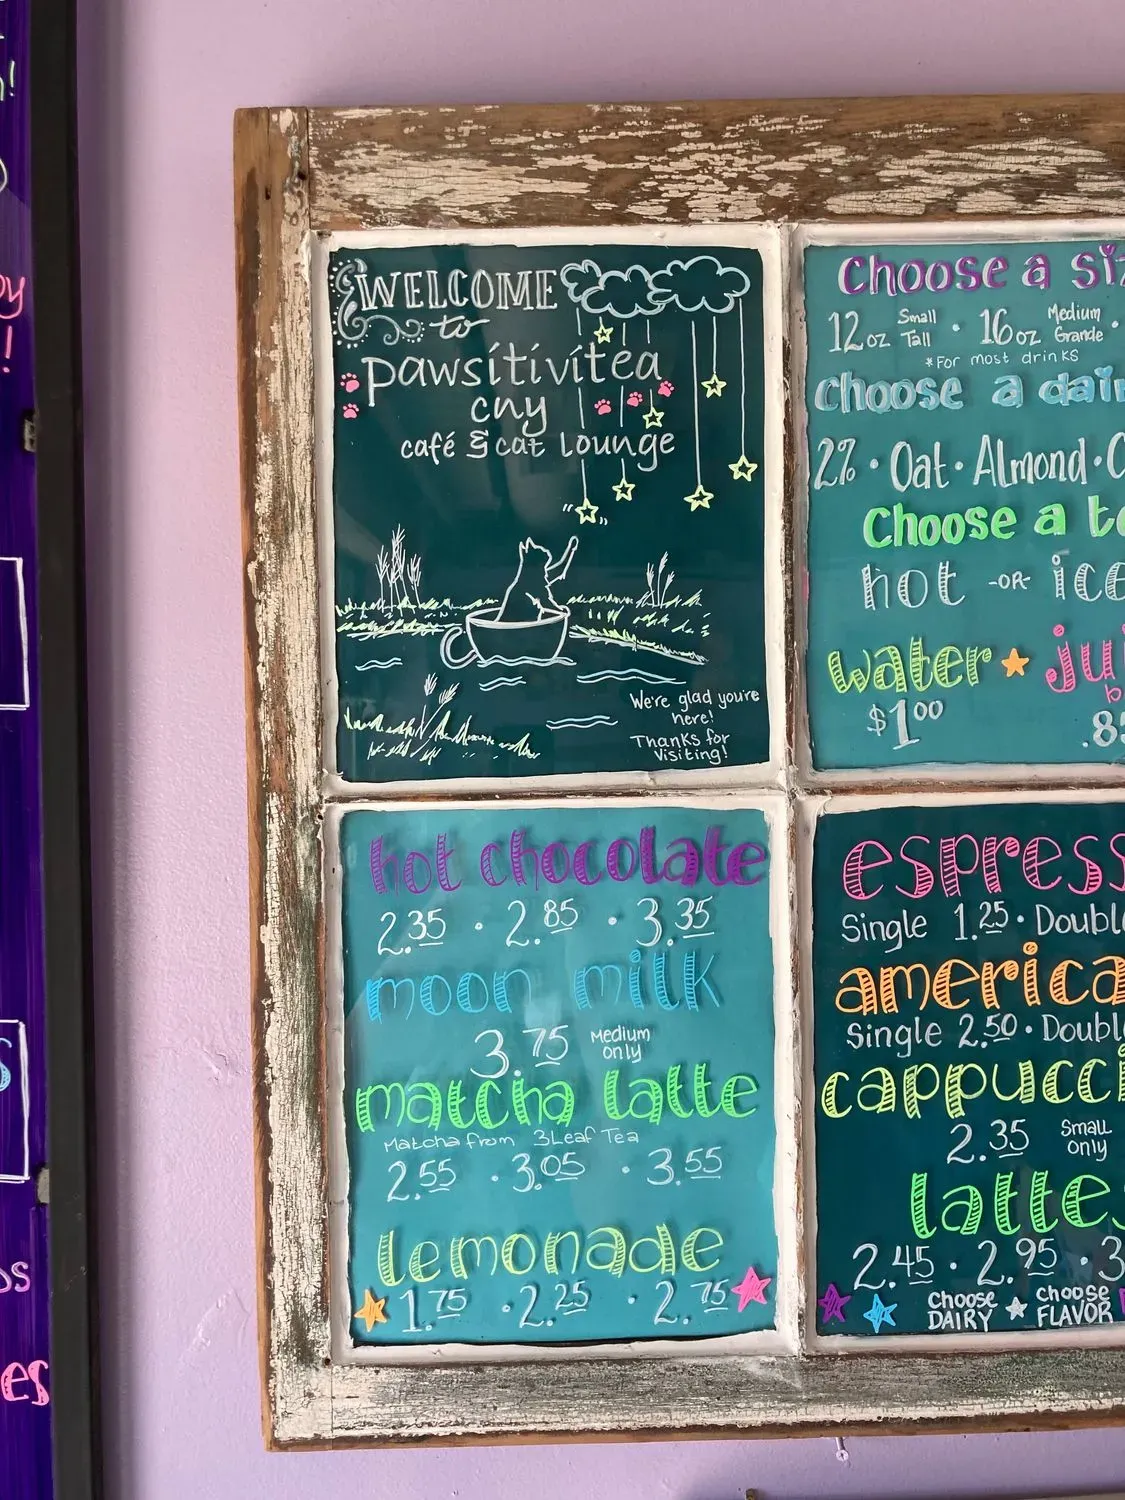 WELCOME
to
pawsitivitea
cny
café & cat lounge
We're glad you're
here!
Thanks for
Visiting!
Choose a
12oz Small Tall · 16oz Medium Grande ·
*For most drinks
Choose a
2% · Oat · Almond ·
Choose a
hot -OR-
water
$1.00
hot chocolate
2.35 · 2.85 · 3.35
moon milk
3.75 Medium only
matcha latte
Matcha from 3Leaf Tea
2.55 · 3.05 · 3.55
lemonade
1.75 · 2.25 · 2.75
Single 1.25 ·
Single 2.50 ·
2.35 Small only
2.45 · 2.95 ·
Choose DAIRY Choose FLAVOR